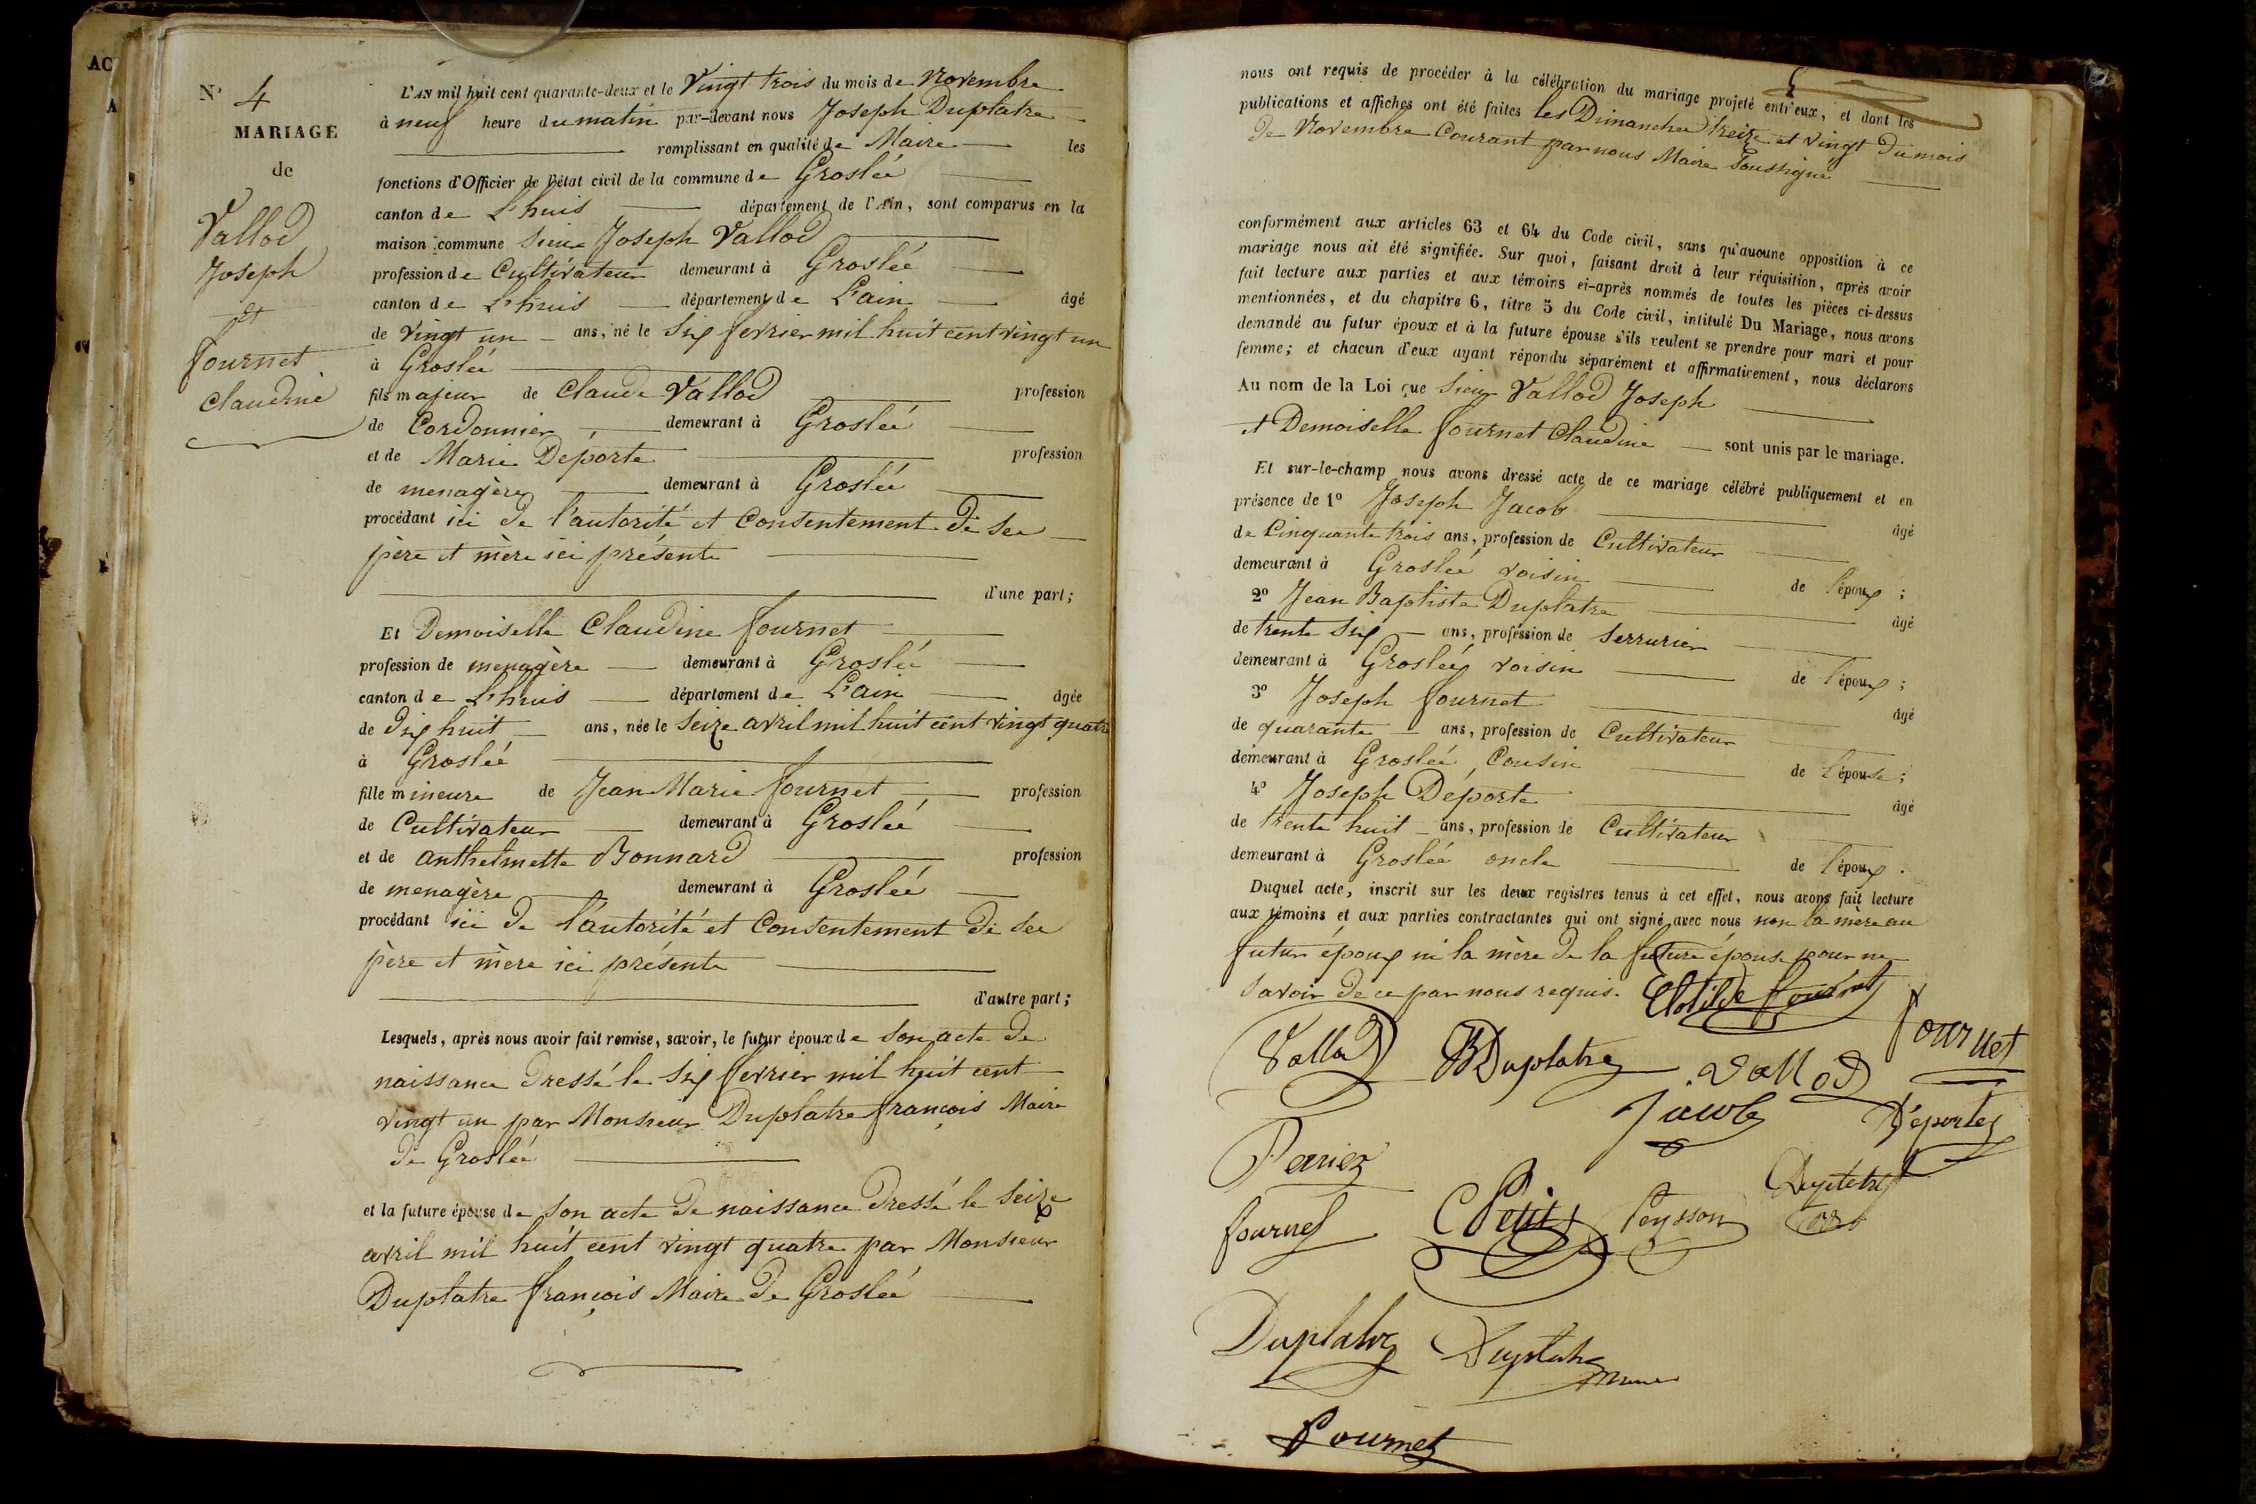 AC
A
N° 4
MARIAGE
de
Vallod
Joseph
et
fournet
Claudine
L'AN mil huit cent quarante-deux et le Vingt trois du mois de Novembre
à neuf heure du matin par-devant nous Joseph Duplatre
remplissant en qualité de Maire les
fonctions d'Officier de l'état civil de la commune de Groslée
canton de L'huis département de l'Ain, sont comparus en la
maison commune Sieur Joseph Vallod
profession de Cultivateur demeurant à Groslée
canton de L'huis département de L'ain âgé
de vingt un ans, né le Six fevrier mil huit cent vingt un
à Groslée
fils majeur de Claude Vallod profession
de Cordonnier demeurant à Groslée
et de Marie Déporte profession
de menagère demeurant à Groslée
procédant ici de l'autorité et Consentement de ses
père et mère ici présents
d'une part;
Et Demoiselle Claudine fournet
profession de menagère demeurant à Groslée
canton de L'huis département de L'ain âgée
de dix huit ans, née le Seize avril mil huit cent vingt quatre
à Groslée
fille mineure de Jean Marie fournet profession
de Cultivateur demeurant à Groslée
et de anthelmette Bonnard profession
de menagère demeurant à Groslée
procédant ici de l'autorité et Consentement de ses
père et mère ici présents
d'autre part;
Lesquels, après nous avoir fait remise, savoir, le futur époux de Son acte de
naissance dressé le Six fevrier mil huit cent
vingt un par Monsieur Duplatre françois Maire
de Groslée
et la future épouse de Son acte de naissance dressé le Seize
avril mil huit cent vingt quatre par Monsieur
Duplatre françois Maire de Groslée
nous ont requis de procéder à la célébration du mariage projeté entr'eux, et dont les
publications et affiches ont été faites les Dimanches treize et vingt du mois
de Novembre Courant par nous Maire Soussigné
conformément aux articles 63 et 64 du Code civil, sans qu'aucune opposition à ce
mariage nous ait été signifiée. Sur quoi, faisant droit à leur réquisition, après avoir
fait lecture aux parties et aux témoins ci-après nommés de toutes les pièces ci-dessus
mentionnées, et du chapitre 6, titre 5 du Code civil, intitulé Du Mariage, nous avons
demandé au futur époux et à la future épouse s'ils veulent se prendre pour mari et pour
femme; et chacun d'eux ayant répondu séparément et affirmativement, nous déclarons
Au nom de la Loi que Sieur Vallod Joseph
et Demoiselle fournet Claudine sont unis par le mariage.
Et sur-le-champ nous avons dressé acte de ce mariage célébré publiquement et en
présence de 1° Joseph Jacob âgé
de Cinquante trois ans, profession de Cultivateur
demeurant à Groslée voisin de l'époux;
2° Jean Baptiste Duplatre âgé
de trente Six ans, profession de Serrurier
demeurant à Groslée voisin de l'époux;
3° Joseph fournet âgé
de quarante ans, profession de Cultivateur
demeurant à Groslée, Cousin de l'épouse;
4° Joseph Déporte âgé
de trente huit ans, profession de Cultivateur
demeurant à Groslée oncle de l'époux.
Duquel acte, inscrit sur les deux registres tenus à cet effet, nous avons fait lecture
aux témoins et aux parties contractantes qui ont signé avec nous non la mère au
futur époux ni la mère de la future épouse pour ne
Savoir de ce par nous requis. Clotilde fournet
Vallod JBDuplatre Vallod fournet
Jacob Déportes
Perrier
fournet C Petit Peysson
Duplatre Duplatre
Maire
fournet